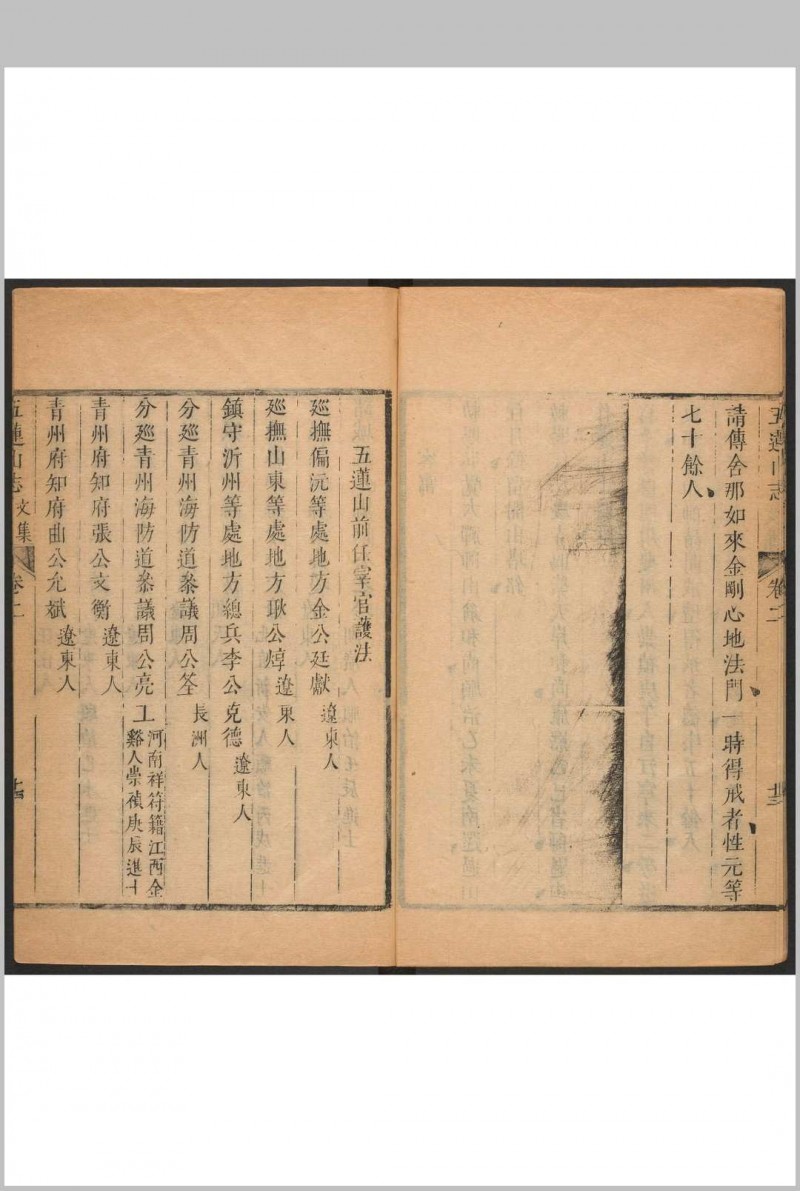 五蓮山志 卷二
請傳舍那如來金剛心地法門一時得戒者性元等
七十餘人
五蓮山前任宰官護法
廵撫偏沅等處地方金公廷獻 遼東人
廵撫山東等處地方耿公焞 遼東人
鎮守沂州等處地方總兵李公克德 遼東人
分廵青州海防道叅議周公荃 長洲人
分廵青州海防道叅議周公亮工 河南祥符籍江西金
谿人崇禎庚辰進士
青州府知府張公文衡 遼東人
青州府知府曲公允斌 遼東人
五蓮山志 文集 卷二